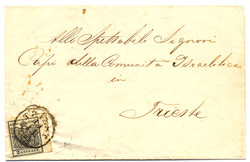 Alli Spettabili Signori
Capi della Comunità Israelitica
in
Trieste